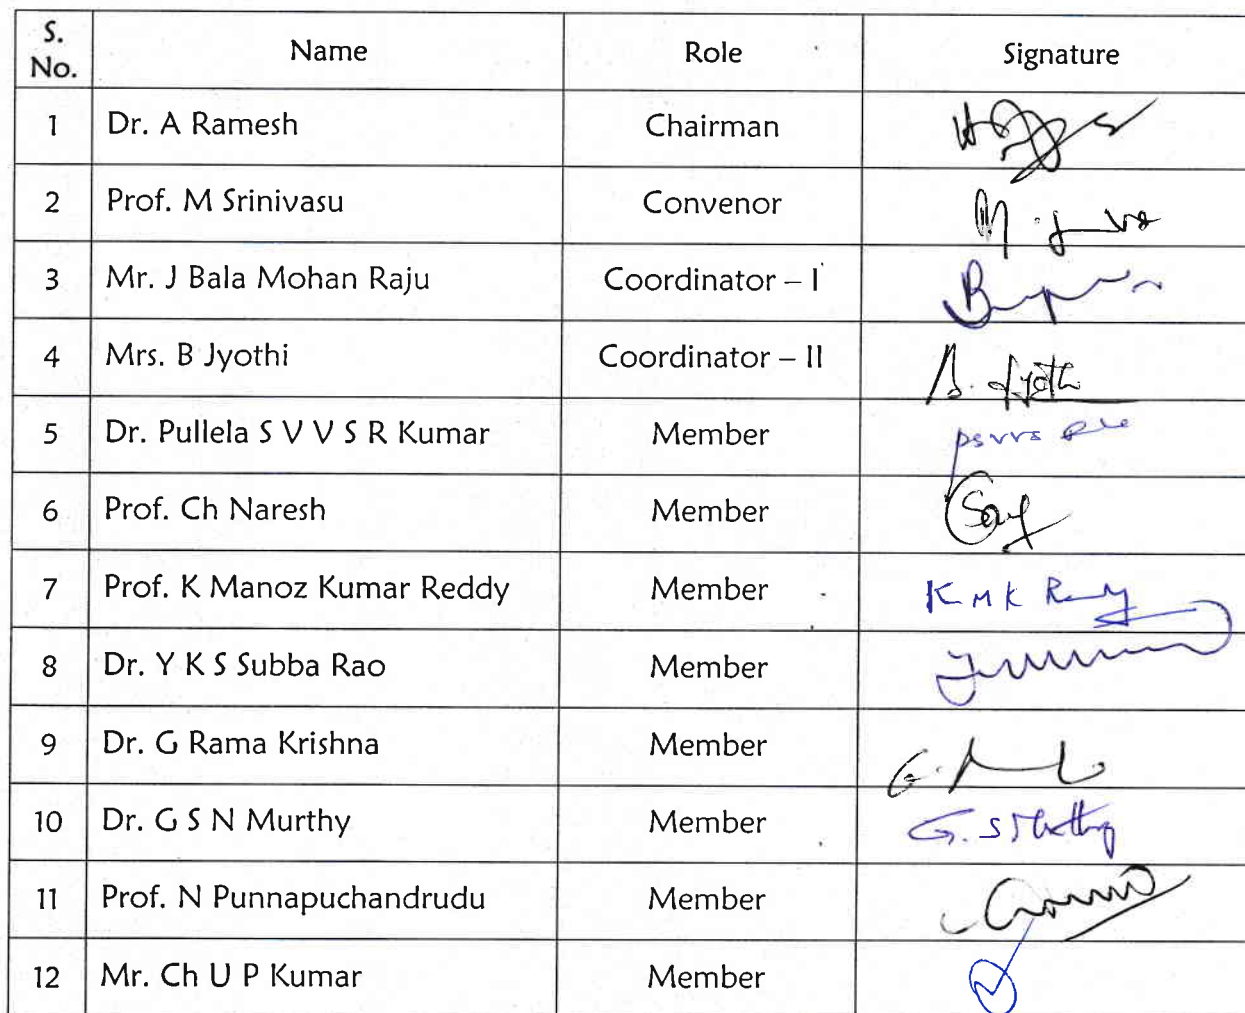 S. No. Name Role Signature
1 Dr. A Ramesh Chairman
2 Prof. M Srinivasu Convenor
3 Mr. J Bala Mohan Raju Coordinator – I
4 Mrs. B Jyothi Coordinator – II B. Jyothi
5 Dr. Pullela S V V S R Kumar Member
6 Prof. Ch Naresh Member
7 Prof. K Manoz Kumar Reddy Member K M K Reddy
8 Dr. Y K S Subba Rao Member
9 Dr. G Rama Krishna Member
10 Dr. G S N Murthy Member
11 Prof. N Punnapuchandrudu Member
12 Mr. Ch U P Kumar Member